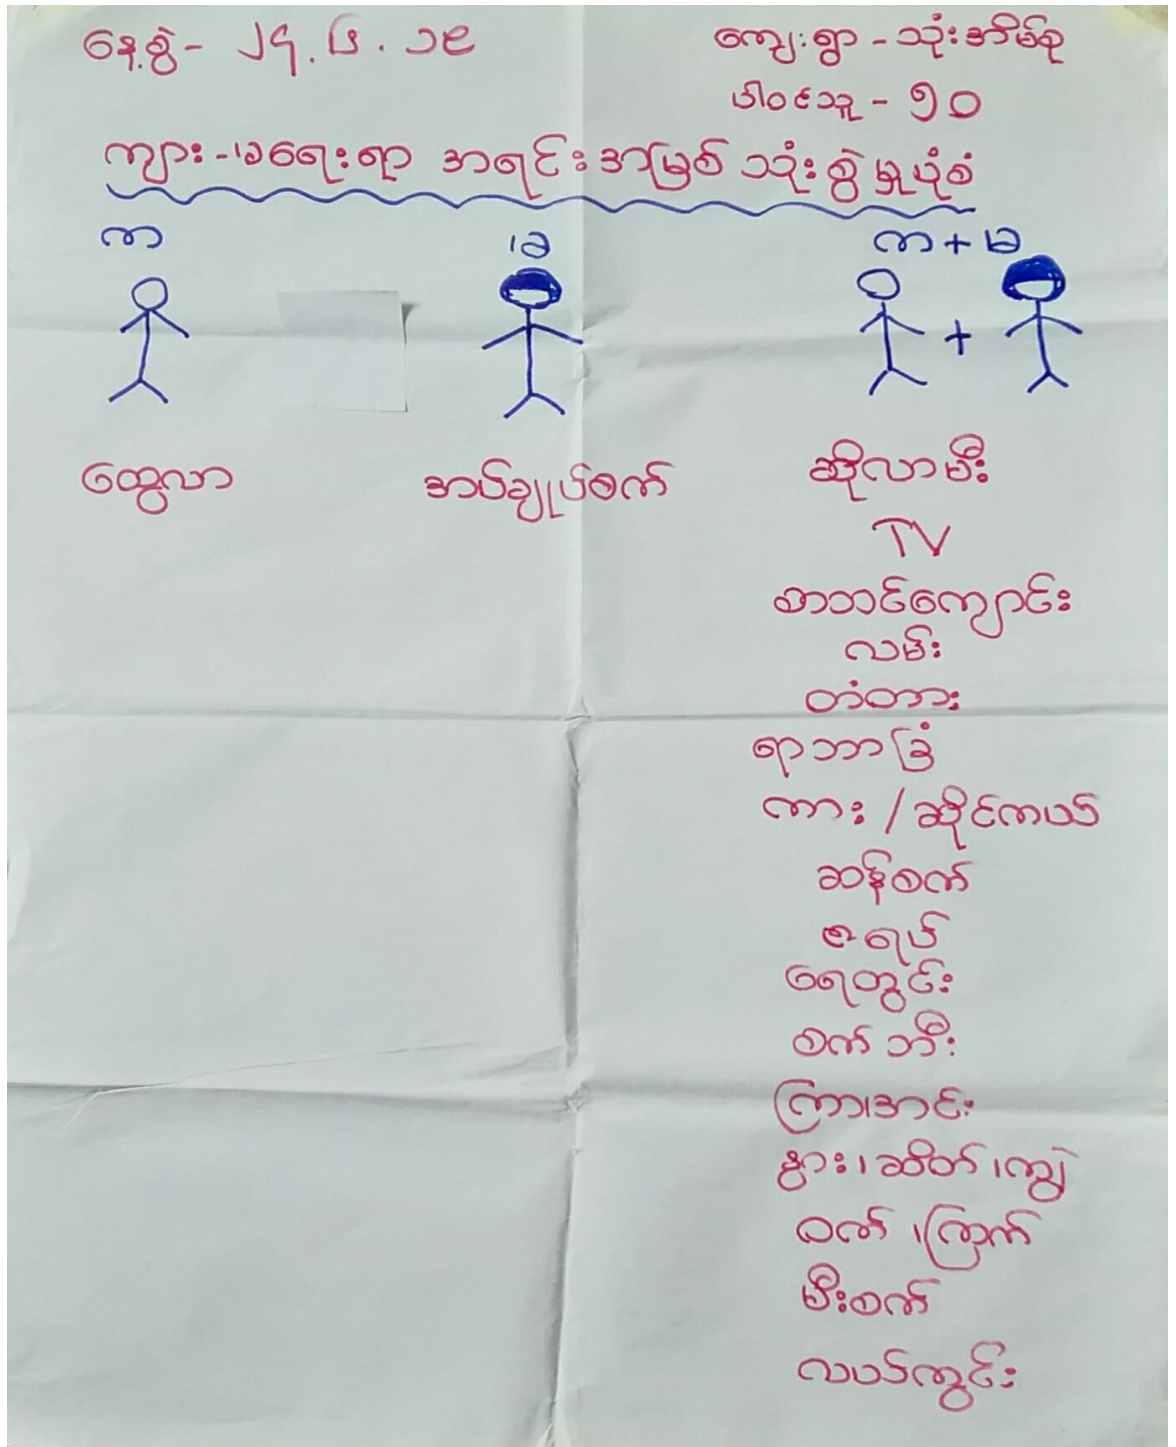 နေ့စွဲ - ၂၄.၆.၁၉
ကျေးရွာ - သုံးအိမ်စု
ပါဝင်သူ - ၅၀
ကျား - မရေးရာ အရင်းအမြစ် သုံးစွဲမှုပုံစံ
ကာ
မ
ကာ + မ
+
ထွေလာ
အပ်ချုပ်စက်
ဆိုလာမီး
TV
စာသင်ကျောင်း
လမ်း
တံတား
ရာဘာခြံ
ကား / ဆိုင်ကယ်
ဆန်စက်
ဇရပ်
ရေတွင်း
စက်ဘီး
ကြာအင်း
နွား၊ ဆိတ်၊ ကျွဲ
ဝက်၊ ကြက်
မီးစက်
လယ်ကွင်း